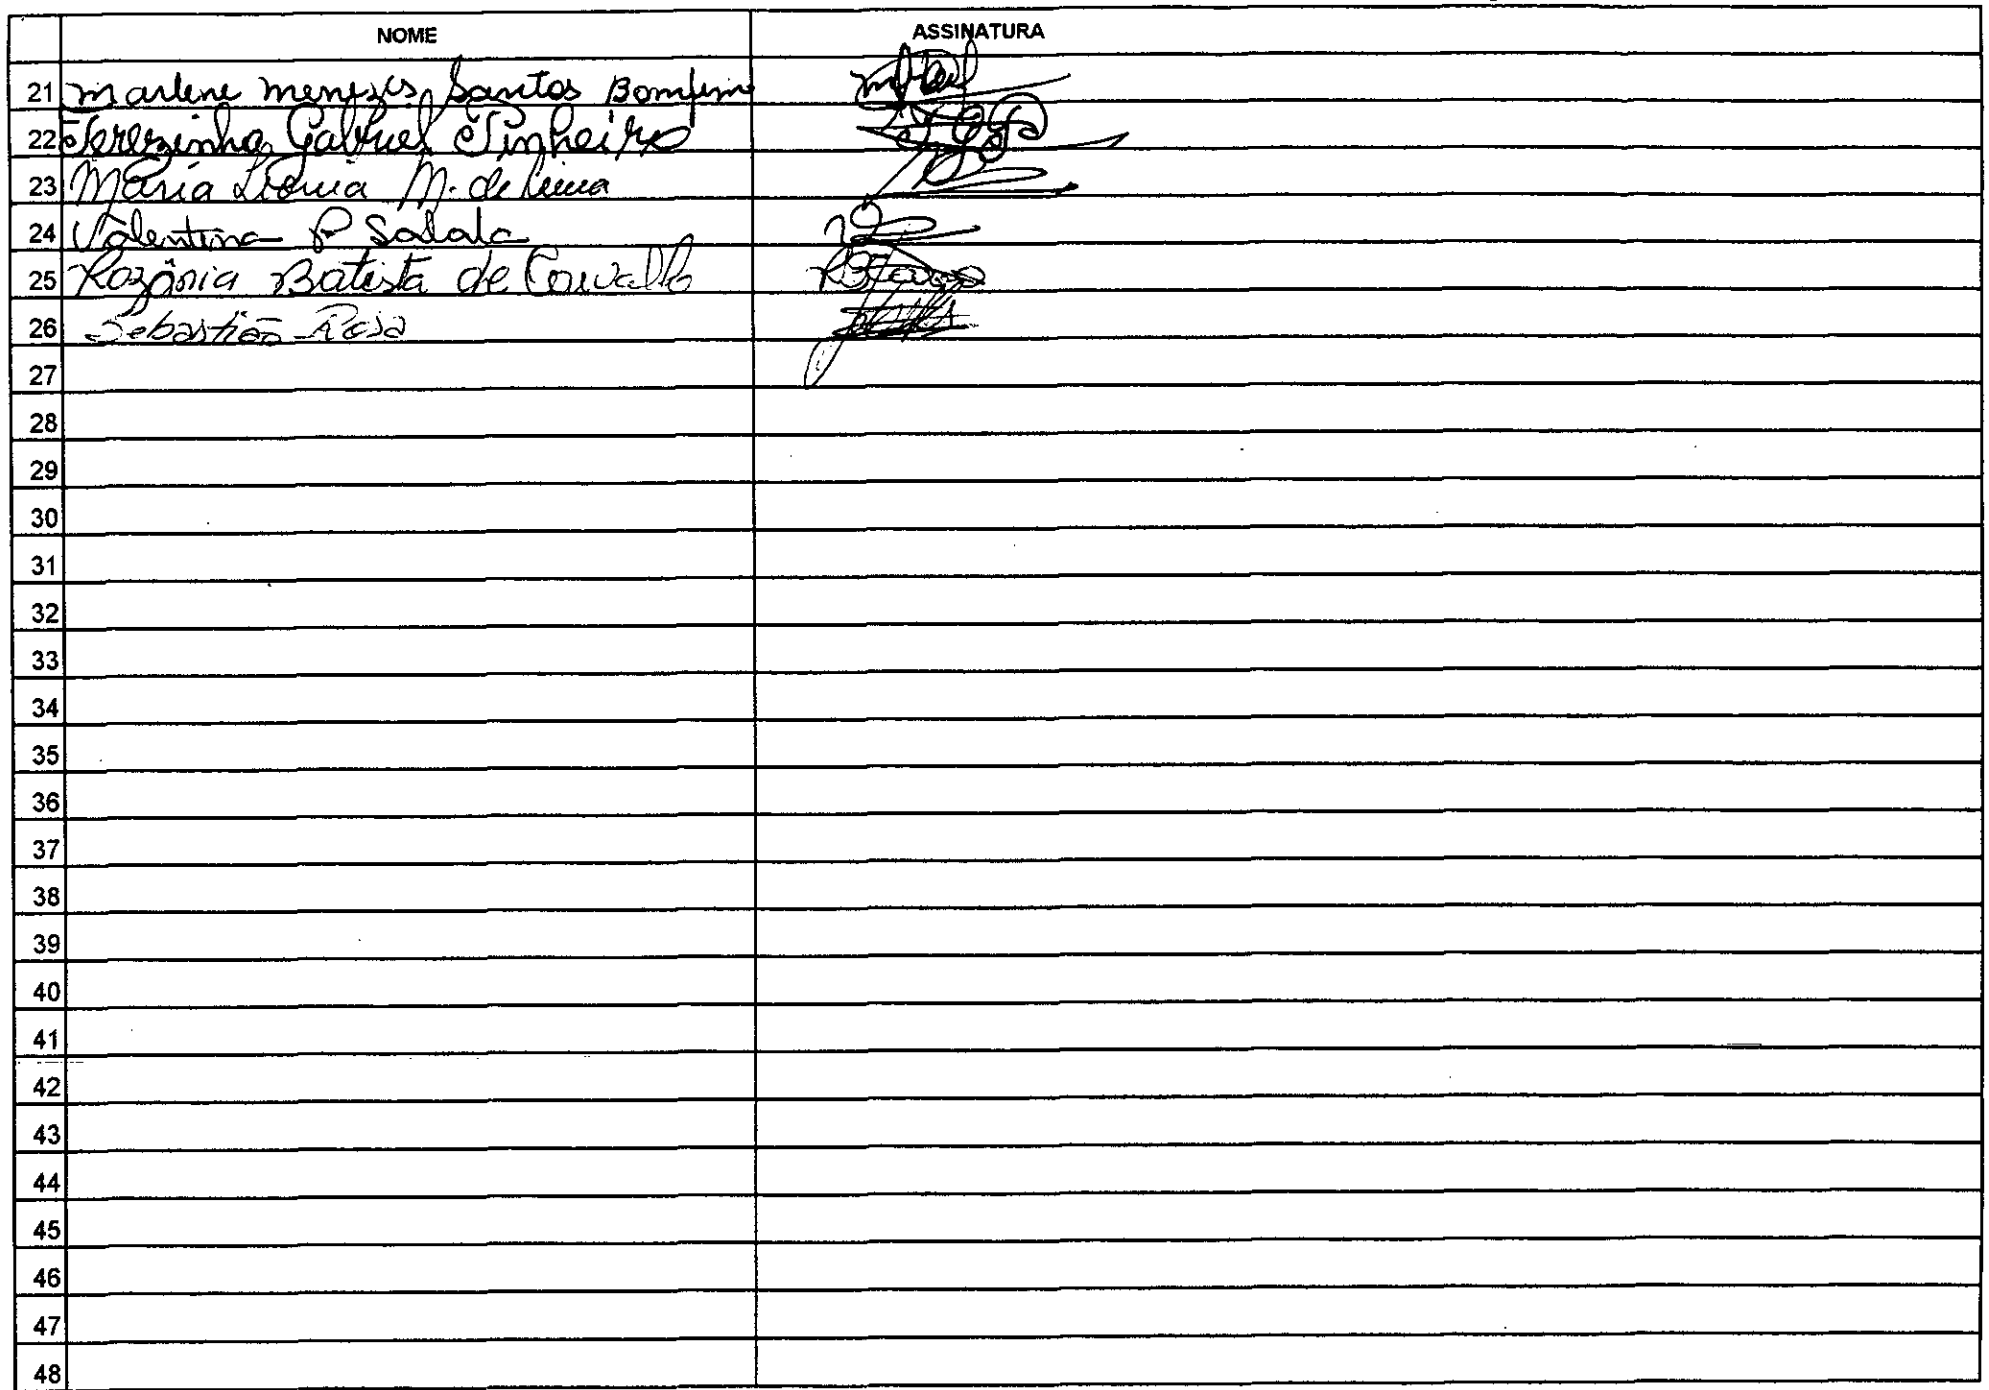 NOME ASSINATURA
21 Marlene Menezes Santos Bomfim
22 Terezinha Gabriel Pinheiro
23 Maria M. de Lima
24 Valentina P Salala
25 Rozânia Batista de Carvalho
26 Sebastião Rosa
27
28
29
30
31
32
33
34
35
36
37
38
39
40
41
42
43
44
45
46
47
48